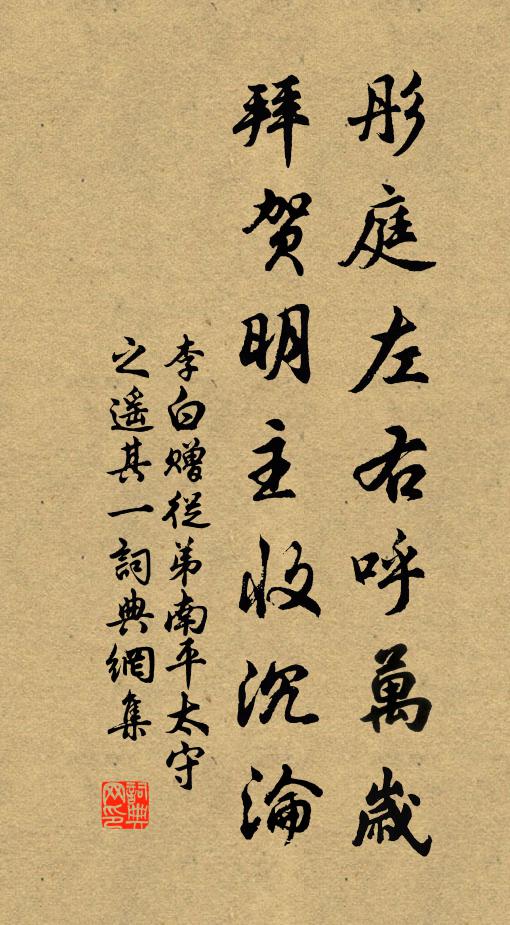 彤庭左右呼萬歲
拜賀明主收沉淪
李白贈從弟南平太守
之遥其一詞典網集
詞典
网印